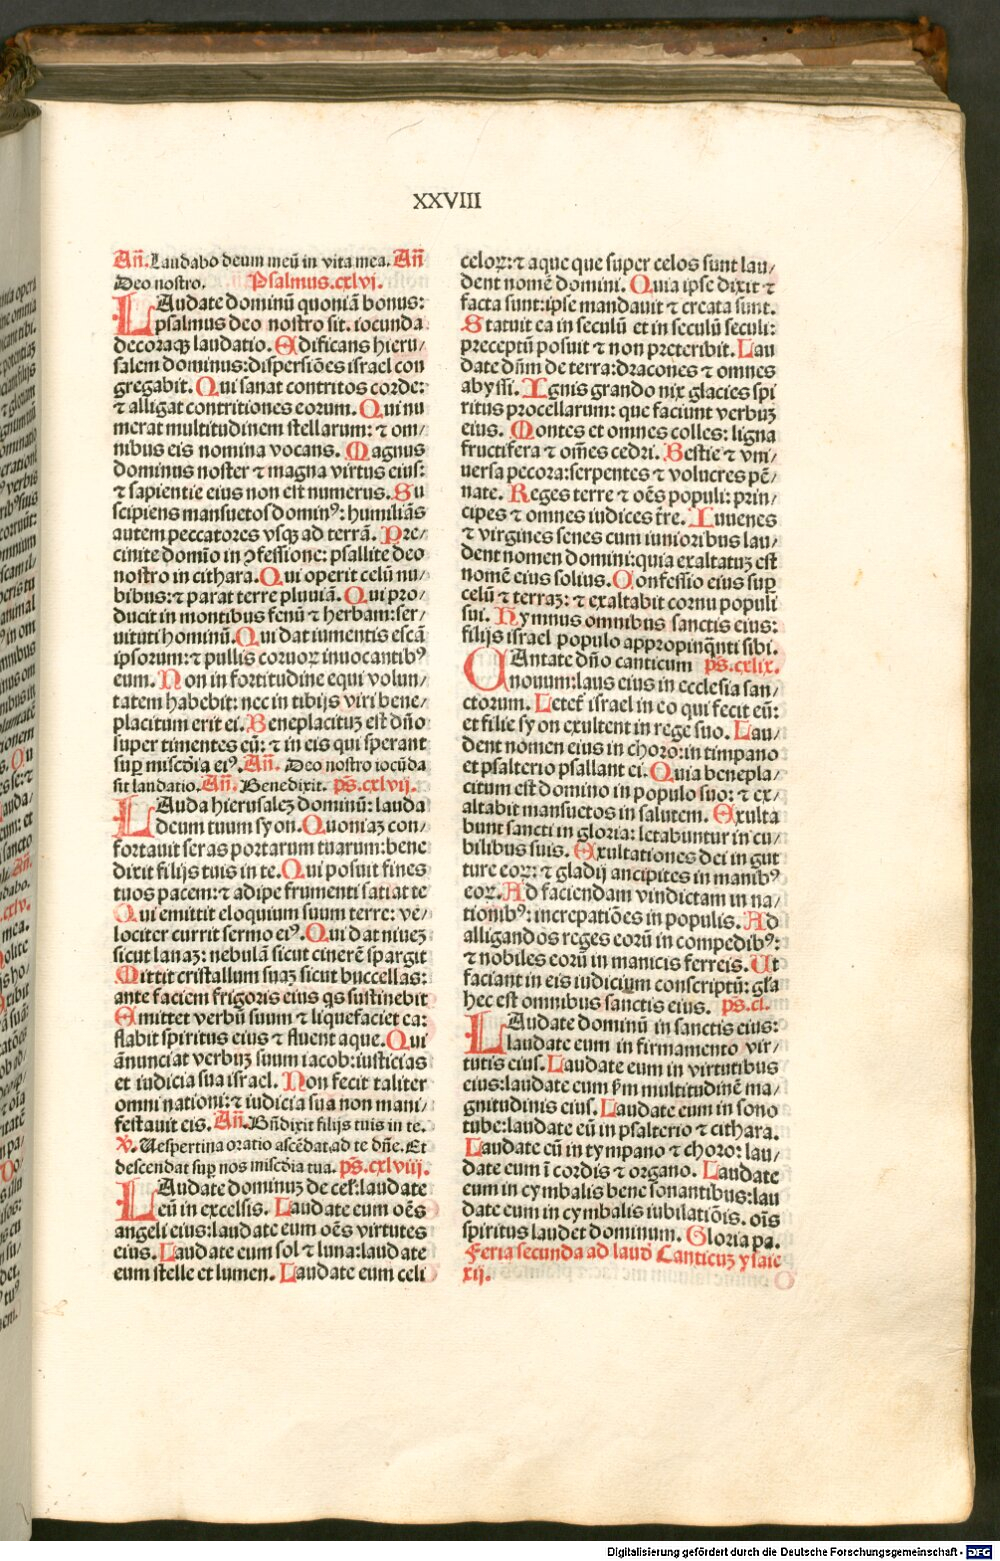 XXVIII
Añ. Laudabo deum meū in vita mea. Añ
Deo nostro. Psalmus.cxlvi.
LAudate dominū quoniā bonus:
psalmus deo nostro sit. iocunda
decoraqȝ laudatio. Edificans hieru/
salem dominus: dispersiōes israel con
gregabit. Qui sanat contritos corde:
⁊ alligat contritiones eorum. Qui nu
merat multitudinem stellarum: ⁊ om/
nibus eis nomina vocans. Magnus
dominus noster ⁊ magna virtus eius:
⁊ sapientie eius non est numerus. Su
scipiens mansuetos domin⁹: humiliās
autem peccatores vsqȝ ad terrā. Pre/
cinite domīo in ꝯfessione: psallite deo
nostro in cithara. Qui operit celū nu/
bibus: ⁊ parat terre pluuiā. Qui pro/
ducit in montibus fenū ⁊ herbam: ser/
uituti hominū. Qui dat iumentis escā
ipsorum: ⁊ pullis coruoꝝ inuocantib⁹
eum. Non in fortitudine equi volun/
tatem habebit: nec in tibijs viri bene/
placitum erit ei. Beneplacituȝ est dño
super timentes eū: ⁊ in eis qui sperant
suꝑ miscōia ei⁹. Añ. Deo nostro iocūda
sit laudatio. Añ. Benedixit. ps̄.cxlvij.
LAuda hierusaleȝ dominū: lauda
deum tuum syon. Quoniaȝ con/
fortauit seras portarum tuarum: bene
dixit filijs tuis in te. Qui posuit fines
tuos pacem: ⁊ adipe frumenti satiat te
Qui emittit eloquium suum terre: ve/
lociter currit sermo ei⁹. Qui dat niueȝ
sicut lanaȝ: nebulā sicut cinerē spargit
Mittit cristallum suaȝ sicut buccellas:
ante faciem frigoris eius qs sustinebit
Emittet verbū suum ⁊ liquefaciet ea:
flabit spiritus eius ⁊ fluent aque. Qui
ānunciat verbuȝ suum iacob: iusticias
et iudicia sua israel. Non fecit taliter
omni nationi: ⁊ iudicia sua non mani/
festauit eis. Añ. Bn̄dixit filijs tuis in te.
℣. Uespertina oratio ascēdat ad te dn̄e. Et
descendat suꝑ nos miscōia tua. ps̄.cxlviij.
LAudate dominuȝ de cel̄: laudate
eū in excelsis. Laudate eum oēs
angeli eius: laudate eum oēs virtutes
eius. Laudate eum sol ⁊ luna: laudate
eum stelle et lumen. Laudate eum celi
celoꝝ: ⁊ aque que super celos sunt lau/
dent nomē domini. Quia ipse dixit ⁊
facta sunt: ipse mandauit ⁊ creata sunt.
Statuit ea in seculū et in seculū seculi:
preceptū posuit ⁊ non preteribit. Lau
date dn̄m de terra: dracones ⁊ omnes
abyssi. Ignis grando nix glacies spi
ritus procellarum: que faciunt verbuȝ
eius. Montes et omnes colles: ligna
fructifera ⁊ om̄es cedri. Bestie ⁊ vni/
uersa pecora: serpentes ⁊ volucres pē/
nate. Reges terre ⁊ oēs populi: prin/
cipes ⁊ omnes iudices tr̄e. Iuuenes
⁊ virgines senes cum iunioribus lau/
dent nomen domini: quia exaltatuȝ est
nomē eius solius. Confessio eius suꝑ
celū ⁊ terraȝ: ⁊ exaltabit cornu populi
sui. Hymnus omnibus sanctis eius:
filijs israel populo appropinq̄nti sibi.
CAntate dn̄o canticum ps̄.cxlix.
nouum: laus eius in ecclesia san/
ctorum. Letet᷑ israel in eo qui fecit eū:
et filie syon exultent in rege suo. Lau/
dent nomen eius in choro: in timpano
et psalterio psallant ei. Quia benepla/
citum est domino in populo suo: ⁊ ex/
altabit mansuetos in salutem. Exulta
bunt sancti in gloria: letabuntur in cu/
bilibus suis. Exultationes dei in gut
ture eoꝝ: ⁊ gladij ancipites in manib⁹
eoꝝ. Ad faciendam vindictam in na/
tionib⁹: increpatiōes in populis. Ad
alligandos reges eorū in compedib⁹:
⁊ nobiles eorū in manicis ferreis. Ut
faciant in eis iudicium conscriptū: gl̄a
hec est omnibus sanctis eius. ps̄.cl.
LAudate dominū in sanctis eius:
laudate eum in firmamento vir/
tutis eius. Laudate eum in virtutibus
eius: laudate eum ẜm multitudinē ma/
gnitudinis eius. Laudate eum in sono
tube: laudate eū in psalterio ⁊ cithara.
Laudate eū in tympano ⁊ choro: lau/
date eum ī cordis ⁊ organo. Laudate
eum in cymbalis bene sonantibus: lau
date eum in cymbalis iubilatiōis. oīs
spiritus laudet dominum. Gloria pa.
Feria secunda ad laud̄ Canticuȝ ysaie
xij.
Digitalisierung gefördert durch die Deutsche Forschungsgemeinschaft - DFG